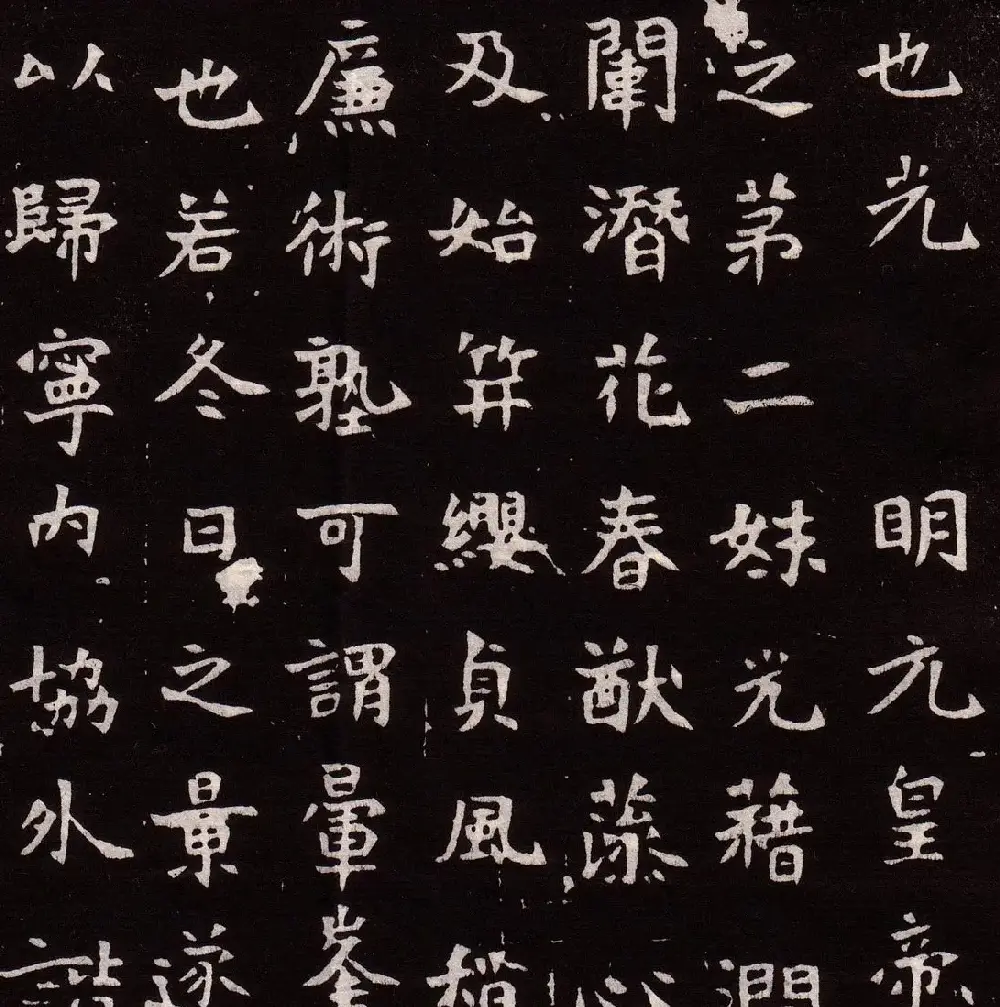 也光明元皇帝
之苐二妹光藉潤
闡潛花春猷蘂心
及始笄纓貞風
廉術塾可謂暈峯
也若冬日之景遂
以歸寧内協外諧